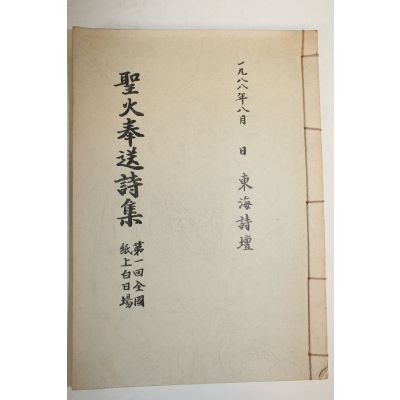 一九八八年八月　日　東海詩壇
聖火奉送詩集
第一回全國
紙上白日場